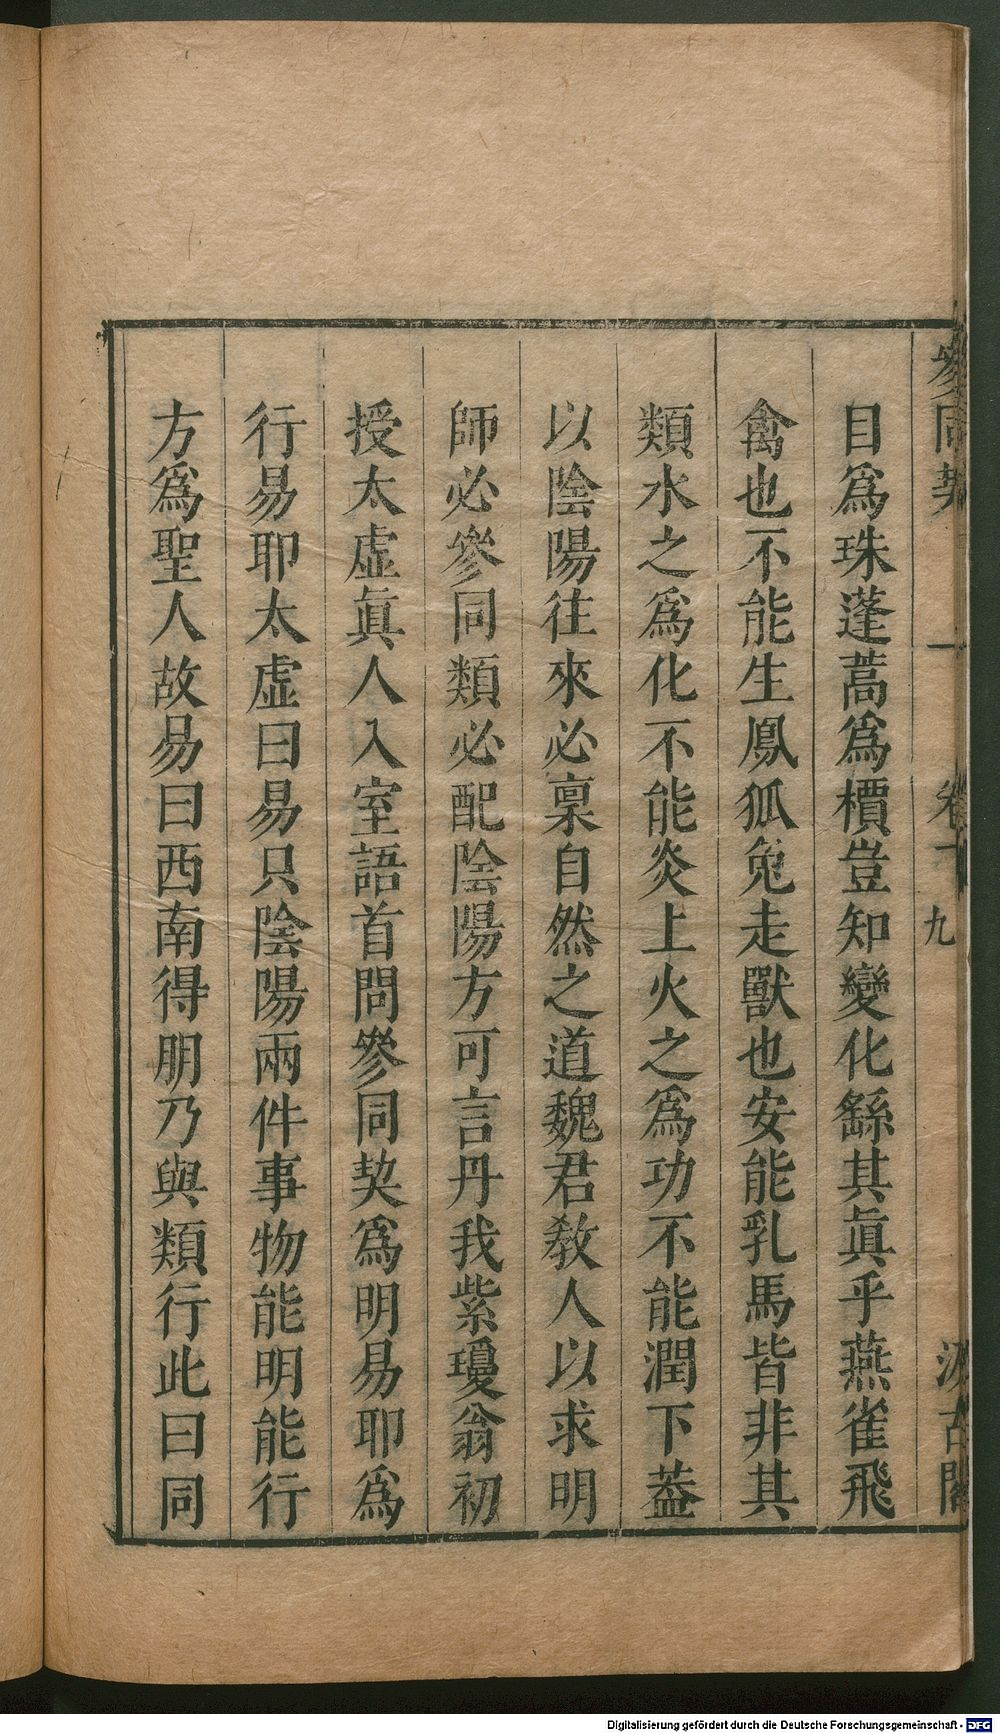 參同契 一 卷一 九 汲古閣
目爲珠蓬蒿爲檟豈知變化繇其眞乎燕雀飛
禽也不能生鳳狐兔走獸也安能乳馬皆非其
類水之爲化不能炎上火之爲功不能潤下葢
以陰陽往來必稟自然之道魏君敎人以求明
師必參同類必配陰陽方可言丹我紫瓊翁初
授太虛眞人入室語首問參同契爲明易耶爲
行易耶太虛曰易只陰陽兩件事物能明能行
方爲聖人故易曰西南得朋乃與類行此曰同
Digitalisierung gefördert durch die Deutsche Forschungsgemeinschaft - DFG